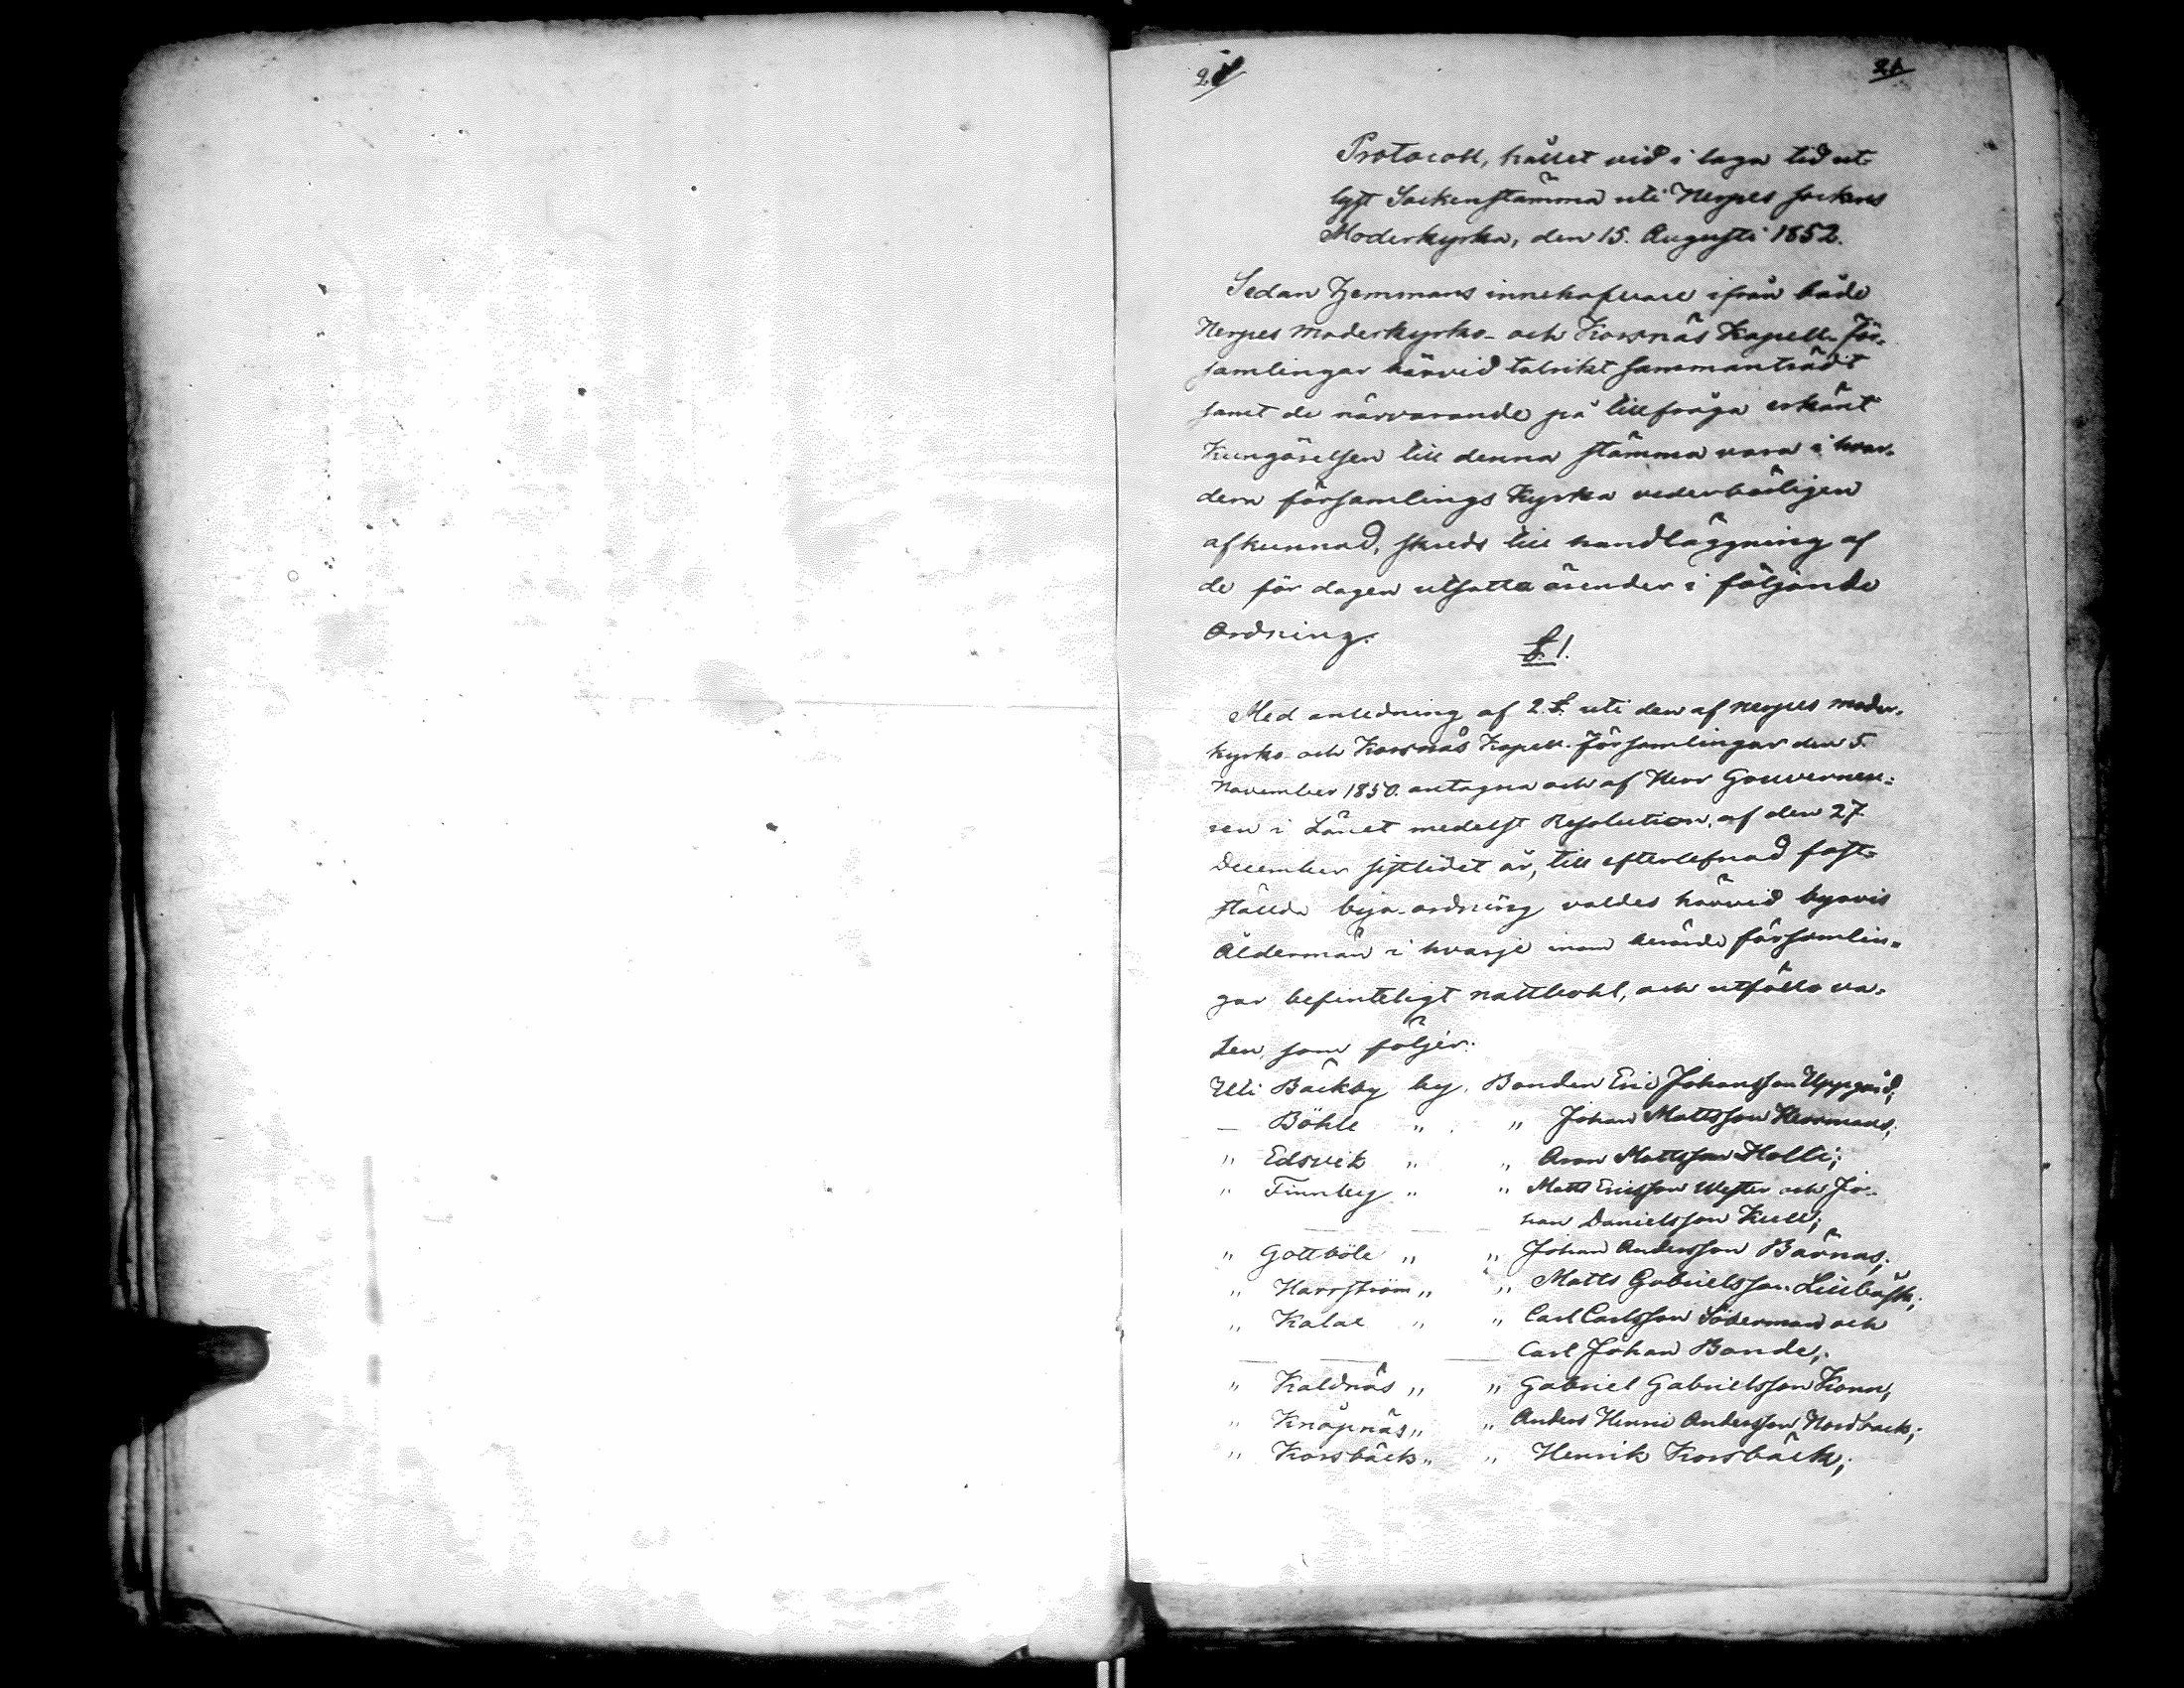 Protocoll, hållet vid i laga tid ut-
lyst Sockenstämma uti Nerpes sockens
Moderkyrka, den 15. Augusti 1852.
Sedan Hemmans innehafvare ifrån både
Nerpes moderkyrko- och Korsnäs Kapell-För-
samlingar härvid talrikt sammanträdt
samt de närvarande på tillfråga erkänt
Kungörelsen till denna stämma vara i hvar-
dera församlings Kyrka vederbörligen
afkunnad, skreds till handläggning af
de för dagen utsatta ärender i följande
Ordning.
§. 1.
Med anledning af 2. §. uti den af Nerpes moder-
kyrko- och Korsnäs Kapell-Församlingar den 5.
November 1850. antagna och af Herr Gouverneu-
ren i Länet medelst Resolution, af den 27.
December sistlidet år, till efterlefnad fast-
stälda byja-ordning valdes härvid byavis
Åldermän i hvarje inom berörde församlin-
gar befinteligt nattbohl, och utföllo va-
len, som följer:
Uti Bäckby by, Bonden Eric Johansson Uppgård;
— Böhle " " Johan Mattsson Herrmans;
" Edsvik " " Aron Mattsson Holli;
" Finnby " " Matts Ericsson Wester och Jo-
han Danielsson Kull;
" Gottböle " " Johan Andersson Bärnas;
" Harrström " " Matts Gabrielsson Lillbåsk;
" Kalax " " Carl Carlsson Söderman och
Carl Johan Bonde;
" Kaldnäs " " Gabriel Gabrielsson Konn;
" Knåpnäs " " Anders Henric Andersson Nordback;
" Korsbäck " " Henrik Korsbäck;